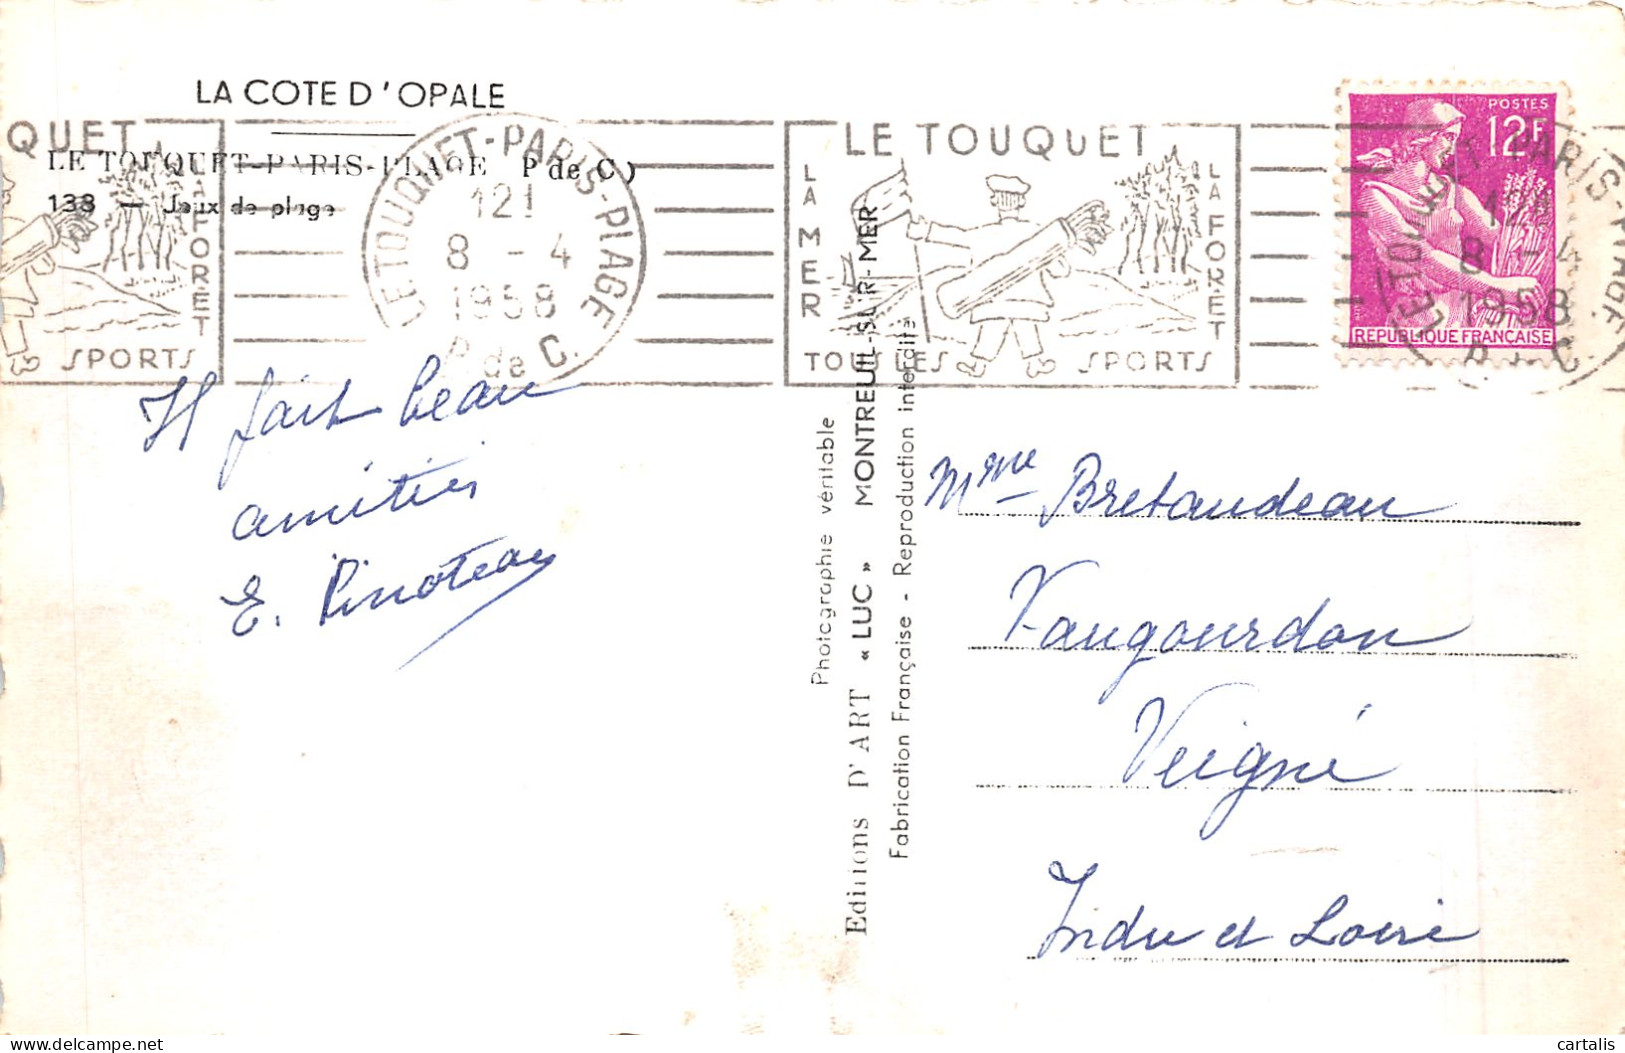 LA COTE D'OPALE
LE TOUQUET-PARIS-PLAGE P de C)
138 — Jeux de plage
QUET
LA FORET
SPORTS
LE TOUQUET-PARIS-PLAGE
12H
8 - 4
1958
P. de C.
LE TOUQUET
LA MER
LA FORET
TOUS LES SPORTS
POSTES
12F
REPUBLIQUE FRANÇAISE
LE TOUQUET-PARIS-PLAGE
12H
8 - 4
1958
P. de C.
Il fait beau
amitiés
E. Pinoteau
Photographie véritable
Editions D'ART « LUC » MONTREUIL-SUR-MER
Fabrication Française - Reproduction interdite
Mme Bretaudeau
Vaugourdon
Veigné
Indre et Loire
delcampe.net
cartalis